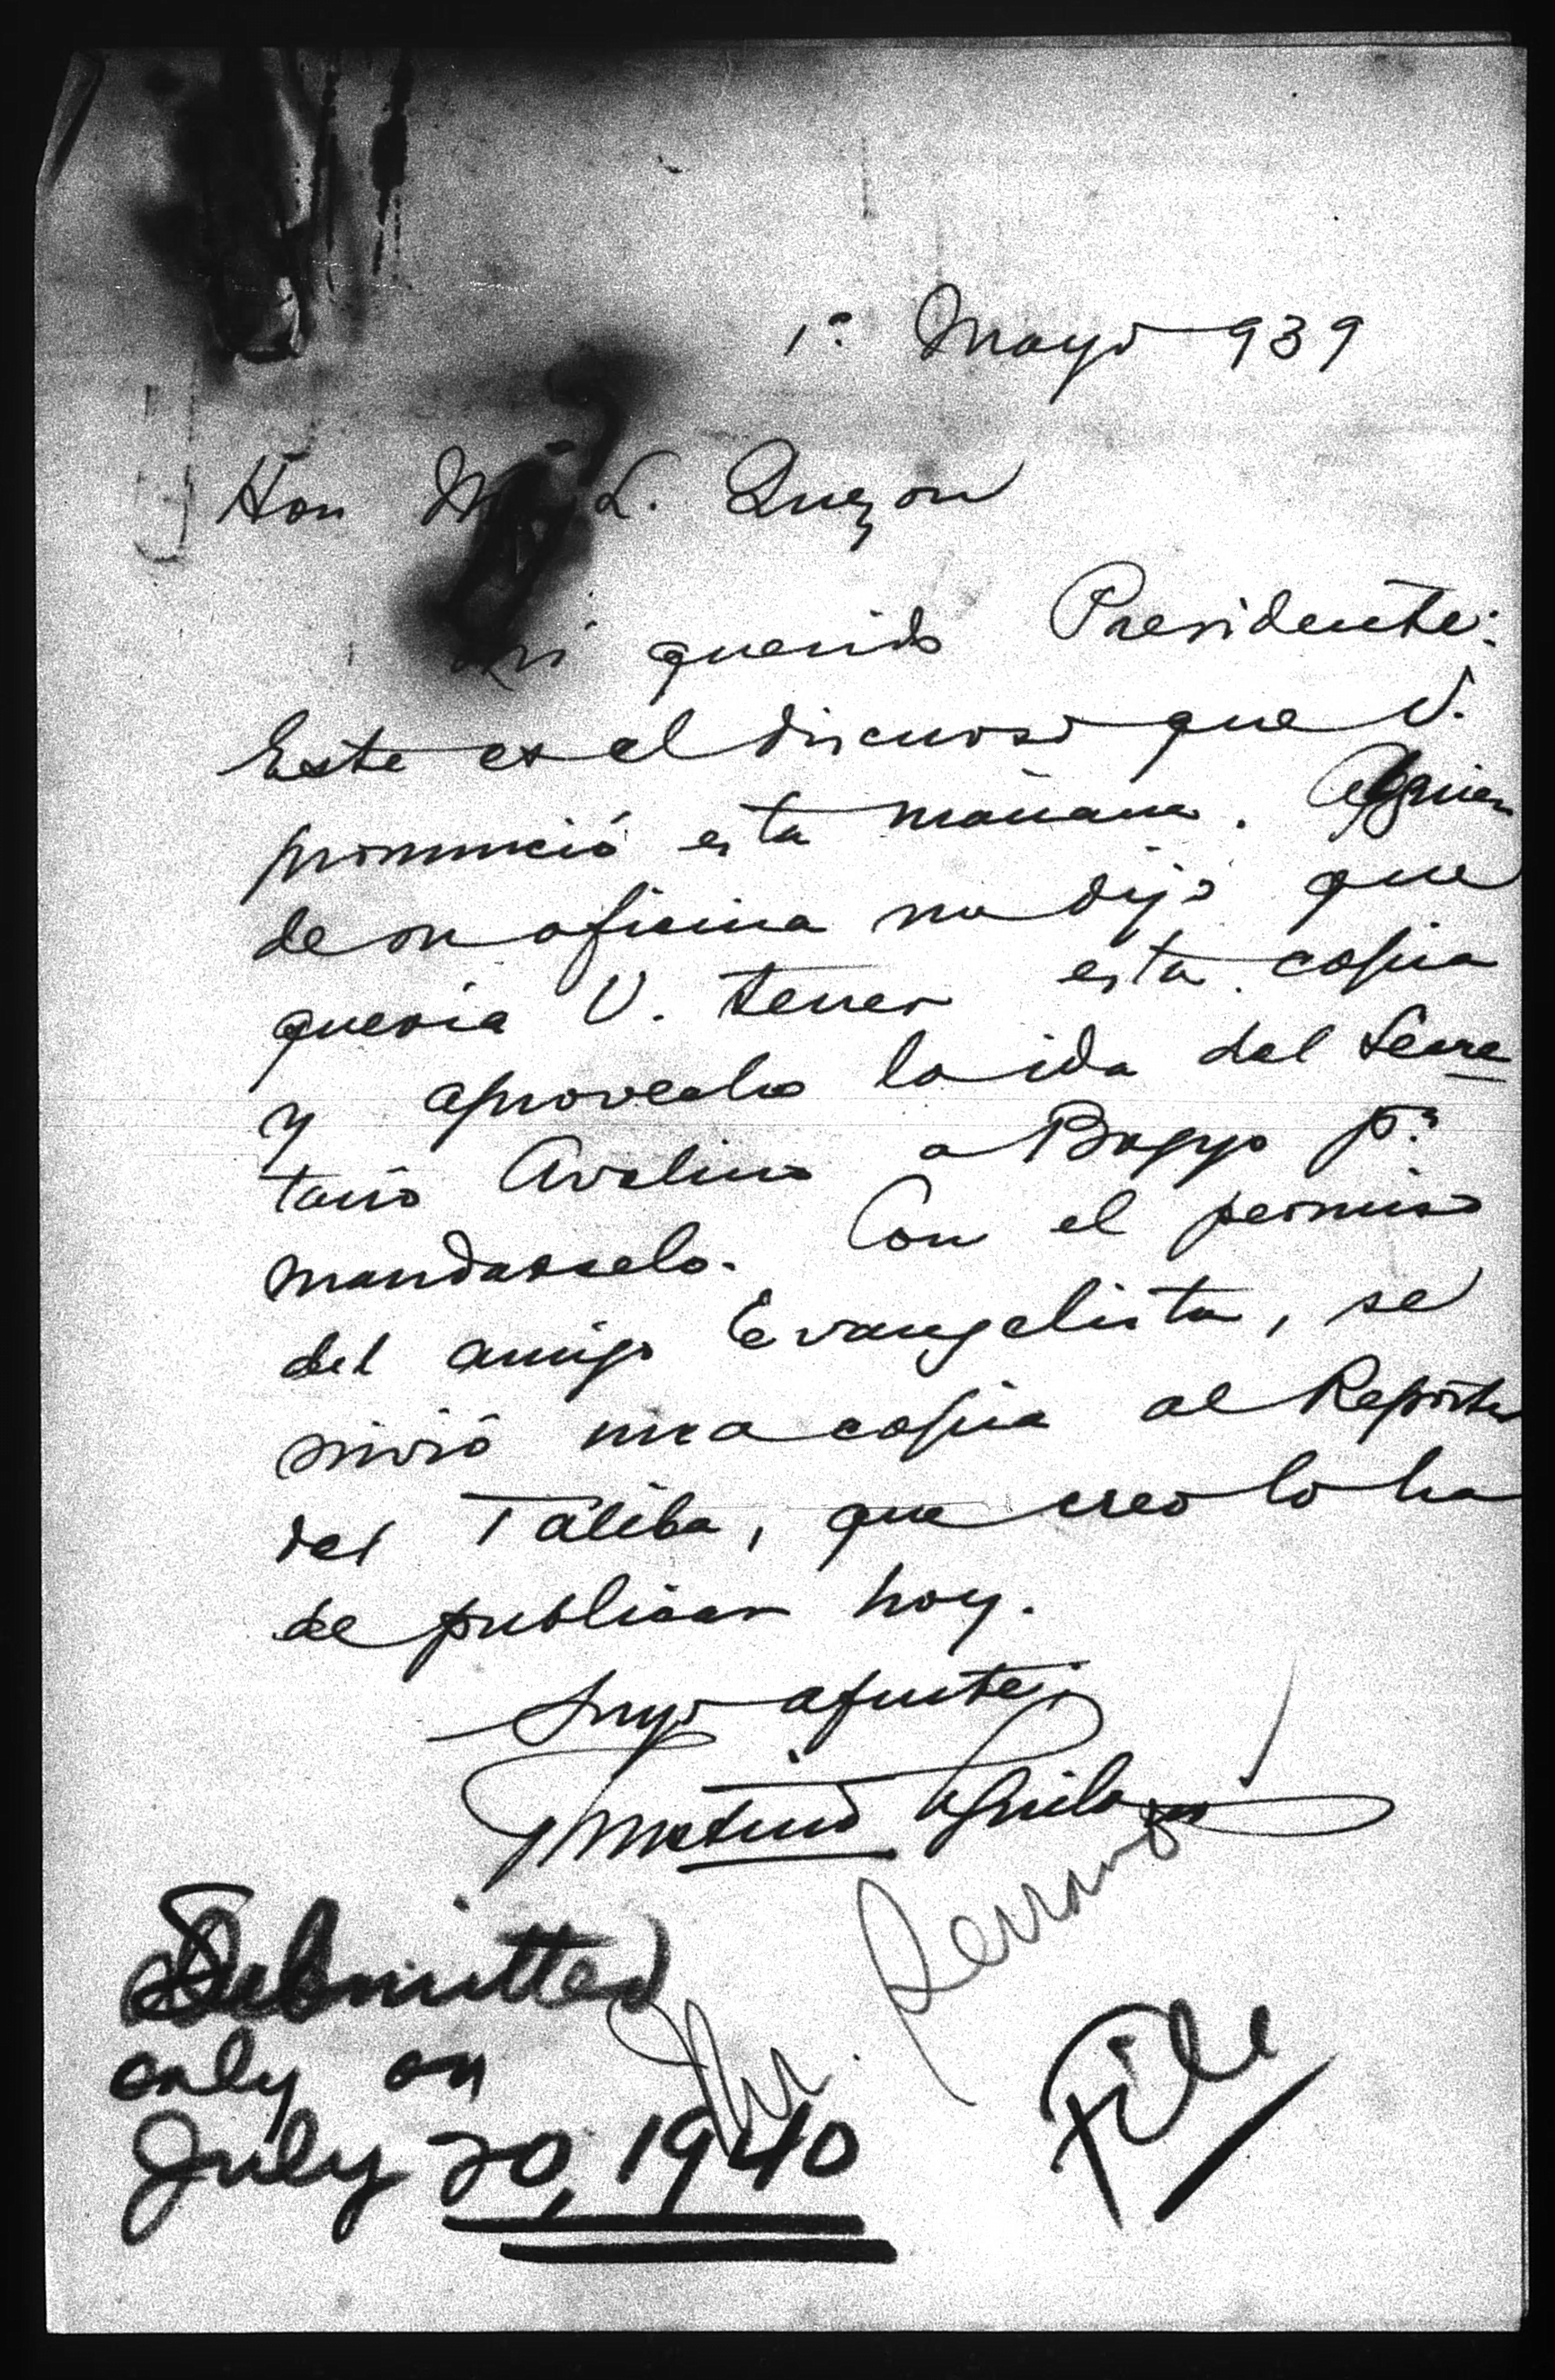 1º Mayo 939
Hon M. L. Quezon
Mi querido Presidente:
Este es el discurso que V.
pronunció esta mañana. Alguien
de su oficina me dijo que
queria V. tener esta copia
y aprovecho la ida del Secre
tario Avelino a Bagyo pª
mandarselo. Con el permiso
del amigo Evangelista, se
sirvió una copia al Reporter
del Taliba, que creo lo ha
de publicar hoy.
Suyo afmte;
Faustino Aguilar
Submitted
only on
July 20, 1940
Mr.
File